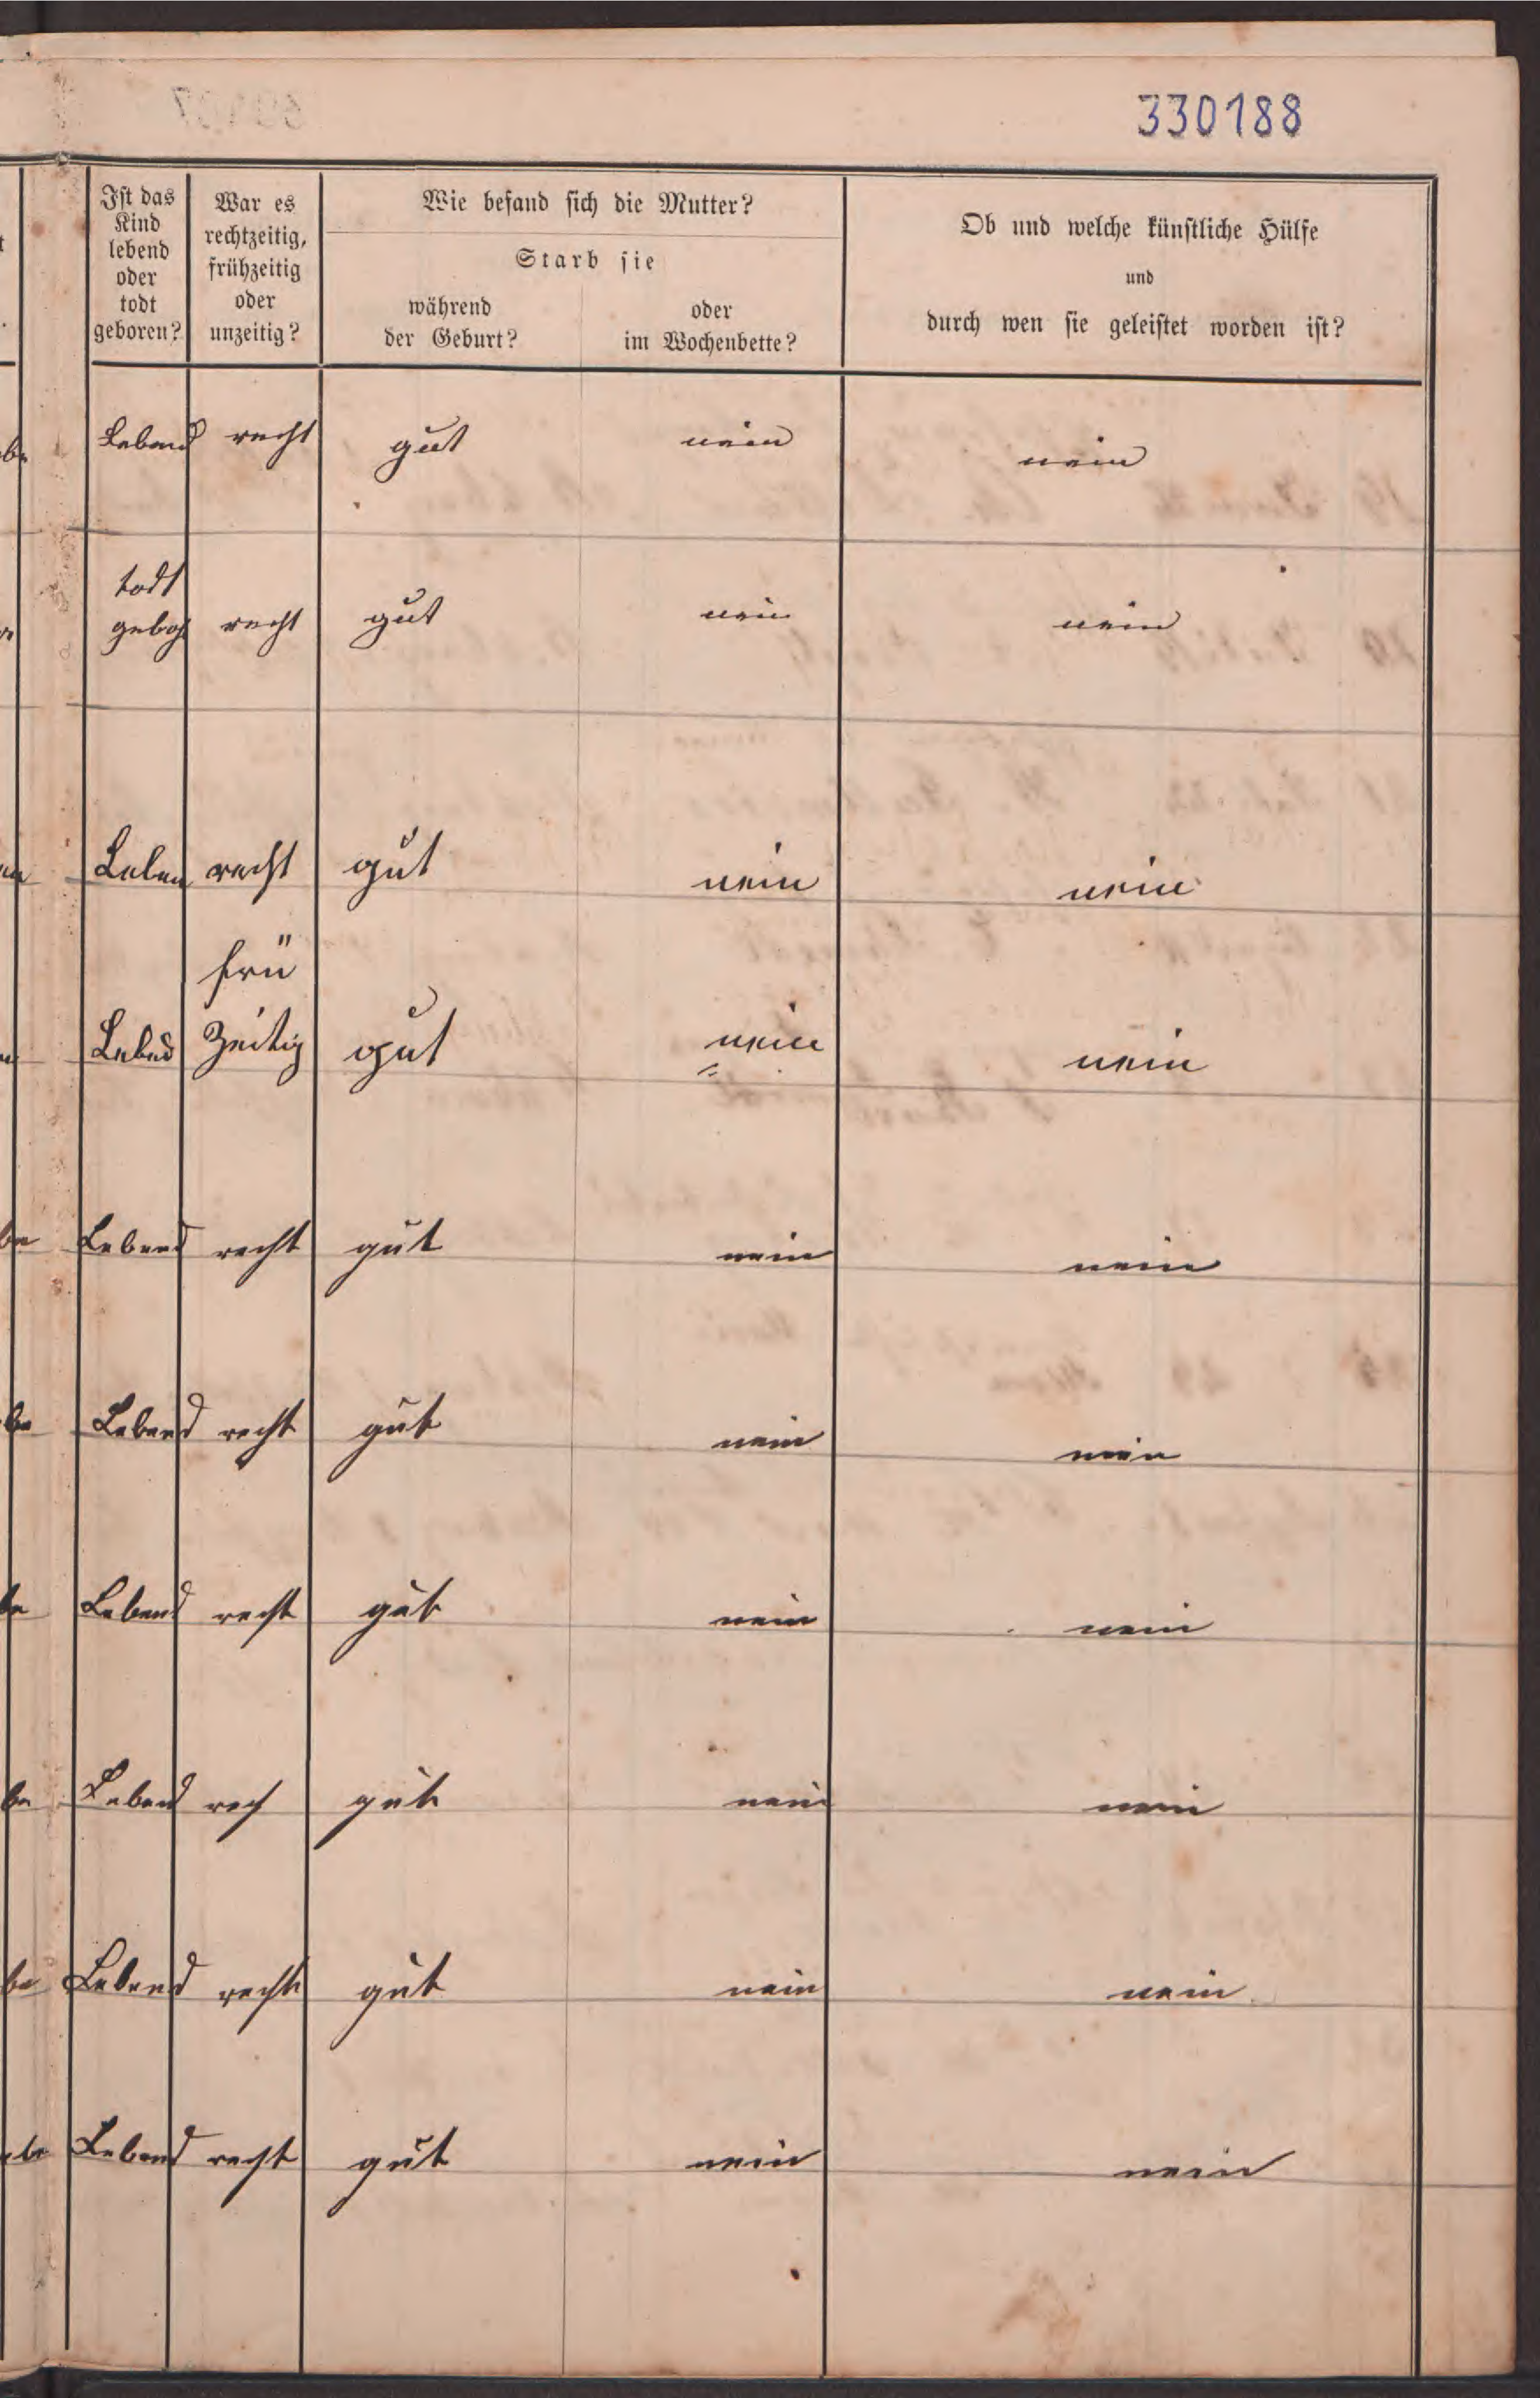 330188
Ist das Kind lebend oder todt geboren?
War es rechtzeitig, frühzeitig oder unzeitig?
Wie befand sich die Mutter?
Starb sie
während der Geburt?
oder im Wochenbette?
Ob und welche künstliche Hülfe
und
durch wen sie geleistet worden ist?
Lebend recht gut nein nein
todt
geboh recht gut nein nein
Leben recht gut nein nein
frü
Lebed Zeitig gut nein nein
be Lebend recht gut nein nein
be Lebend recht gut nein nein
be Lebend recht gut nein nein
be Lebend rech gut nein nein
be Lebend recht gut nein nein
be Lebend recht gut nein nein